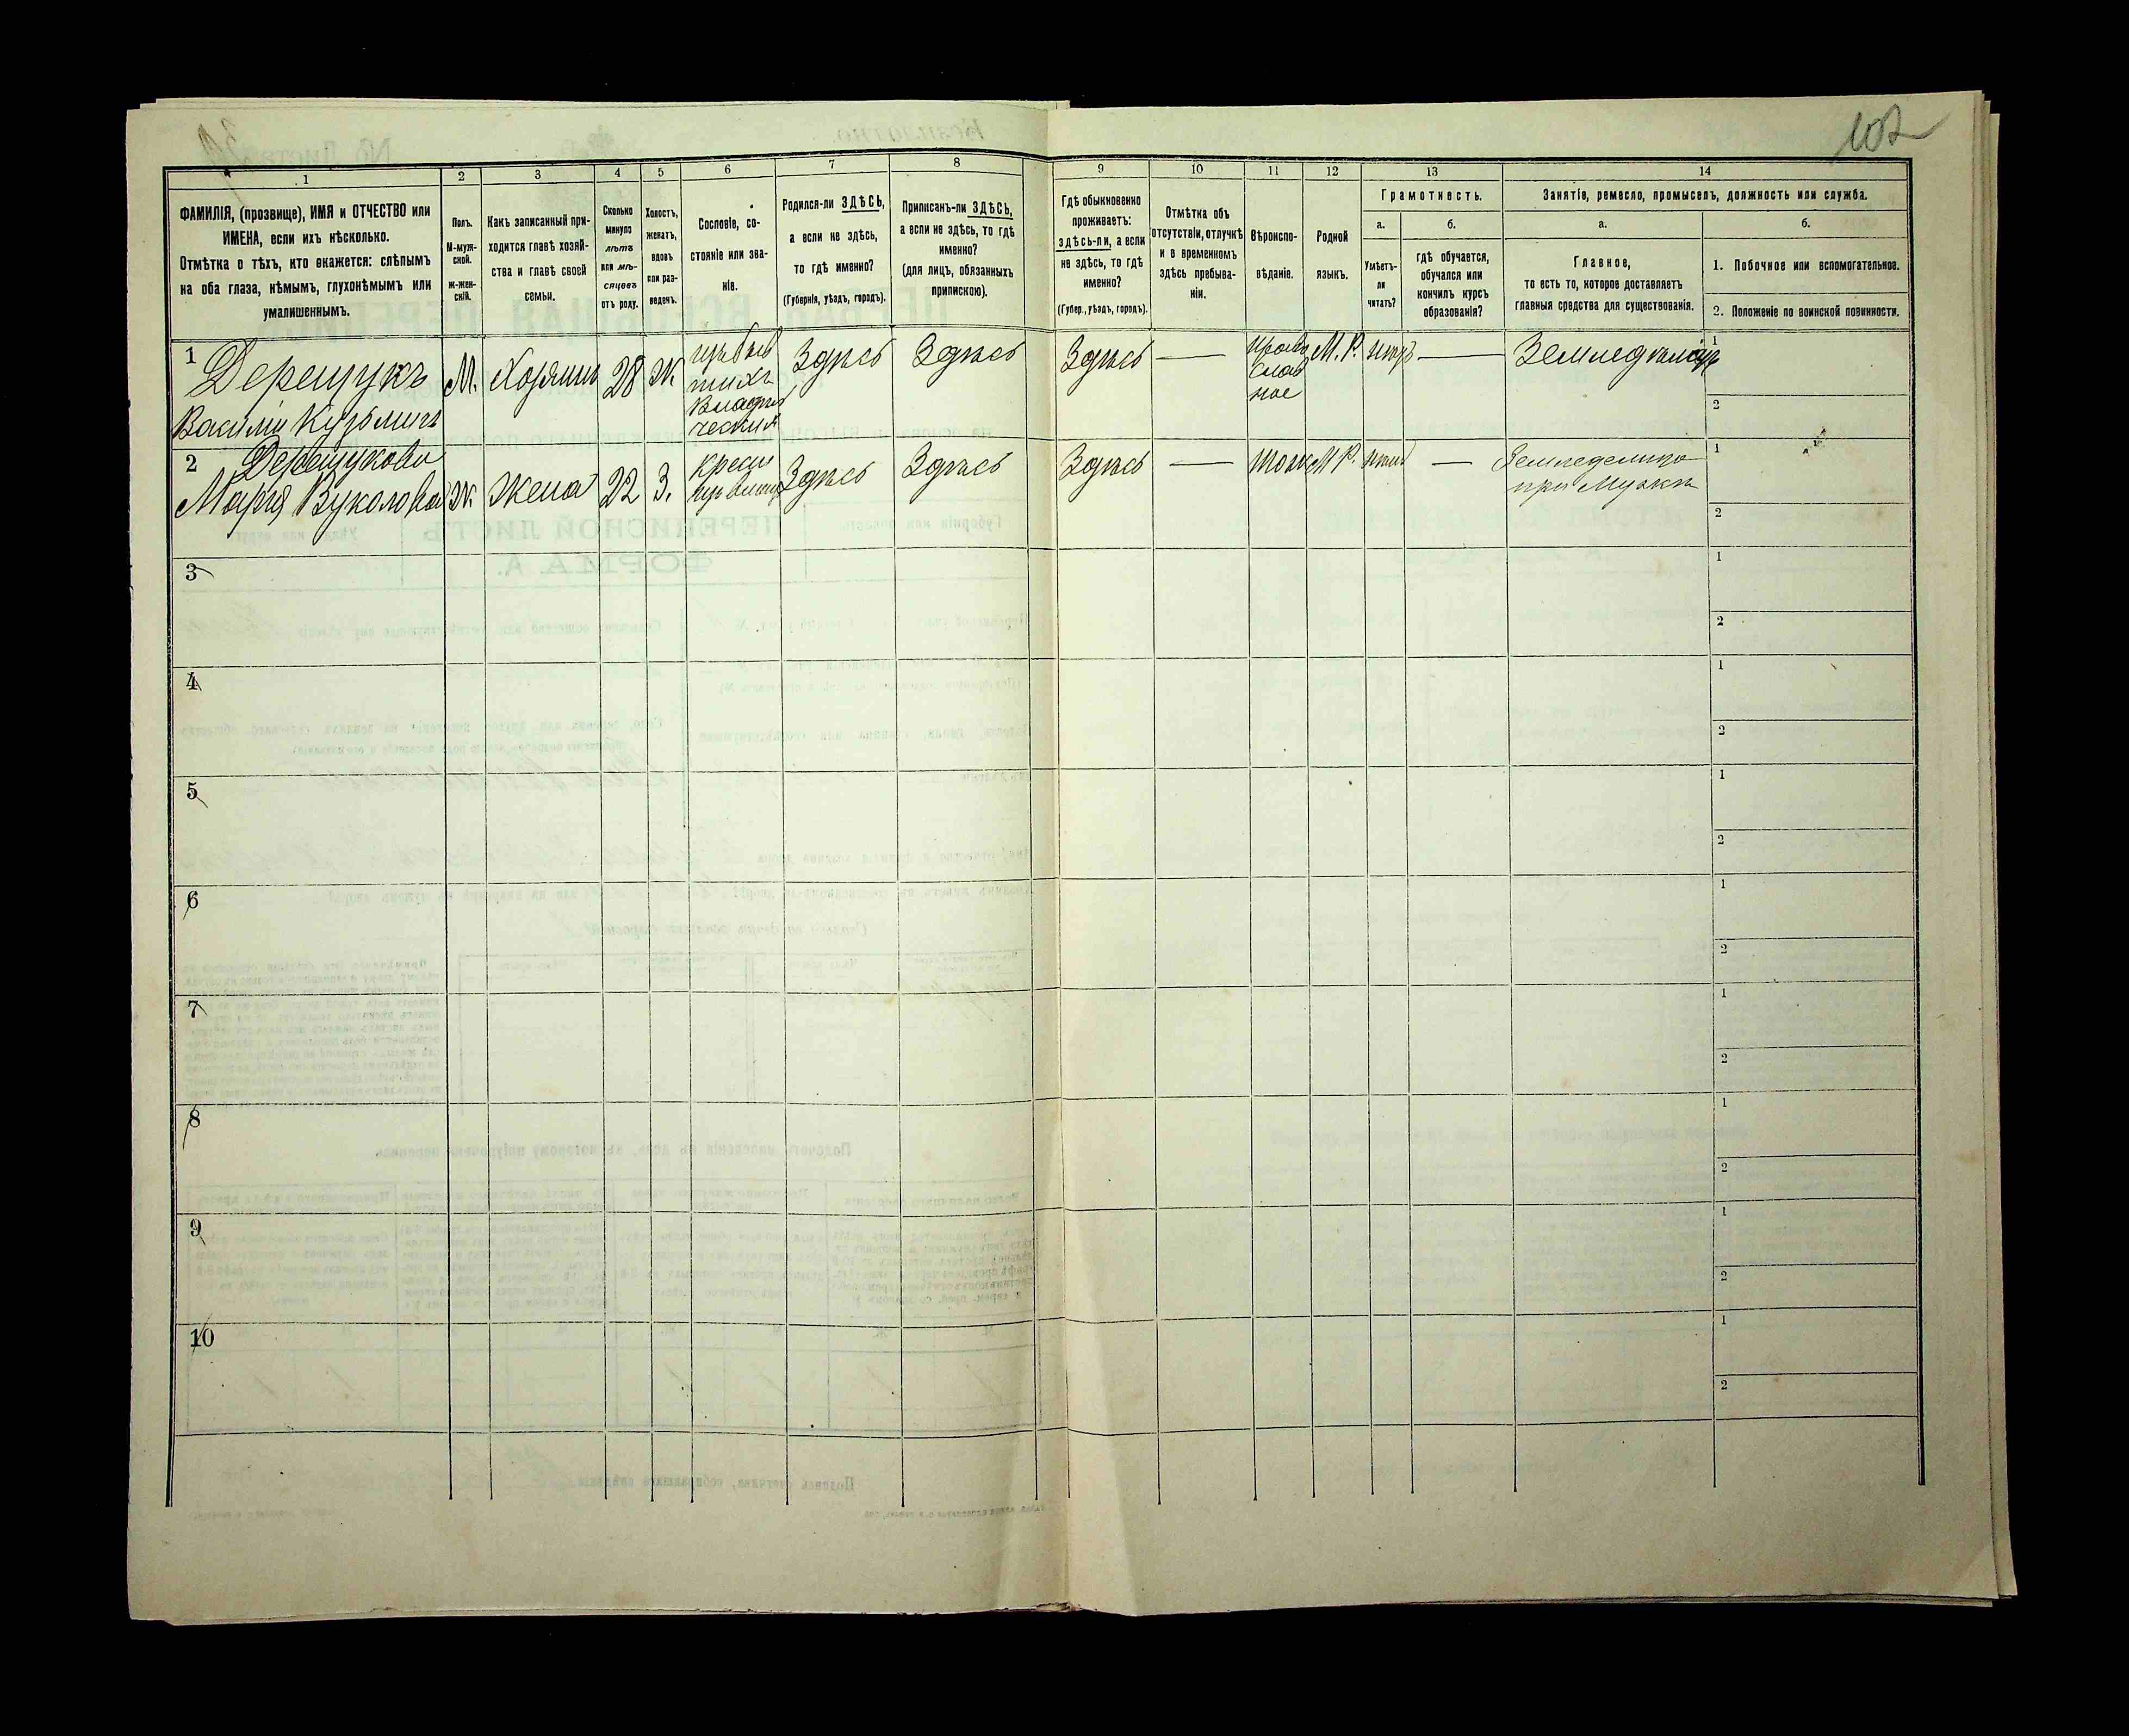 102
1
2
3
4
5
6
7
8
9
10
11
12
13
14
ФАМИЛІЯ, (прозвище), ИМЯ и ОТЧЕСТВО или
ИМЕНА, если ихъ нѣсколько.
Отмѣтка о тѣхъ, кто окажется: слѣпымъ
на оба глаза, нѣмымъ, глухонѣмымъ или
умалишеннымъ.
Полъ.
М-муж-
ской.
ж-жен-
скій.
Какъ записанный при-
ходится главѣ хозяй-
ства и главѣ своей
семьи.
Сколько
минуло
лѣтъ
или мѣ-
сяцевъ
отъ роду.
Холостъ,
женатъ,
вдовъ
или раз-
веденъ.
Сословіе, со-
стояніе или зва-
ніе.
Родился-ли ЗДѢСЬ,
а если не здѣсь,
то гдѣ именно?
(Губернія, уѣздъ, городъ).
Приписанъ-ли ЗДѢСЬ,
а если не здѣсь, то гдѣ
именно?
(для лицъ, обязанныхъ
припискою).
Гдѣ обыкновенно
проживаетъ:
здѣсь-ли, а если
не здѣсь, то гдѣ
именно?
(Губер., уѣздъ, городъ).
Отмѣтка объ
отсутствіи, отлучкѣ
и о временномъ
здѣсь пребыва-
ніи.
Вѣроиспо-
вѣданіе.
Родной
языкъ.
Грамотность.
а.
Умѣетъ-
ли
читать?
б.
гдѣ обучается,
обучался или
кончилъ курсъ
образованія?
Занятіе, ремесло, промыселъ, должность или служба.
а.
Главное,
то есть то, которое доставляетъ
главныя средства для существованія.
б.
1. Побочное или вспомогательное.
2. Положеніе по воинской повинности.
1
Дерещукъ
Василій Кузьмичъ
М.
Хозяинъ
28
Ж
Здѣсь
Здѣсь
Здѣсь
—
Право
слав
ное
М. Р.
—
1
2
2
Марія Вуколова
Ж
Жена
22
З.
Здѣсь
Здѣсь
Здѣсь
—
тоже
М Р.
—
при Мужѣ
1
2
3
1
2
4
1
2
5
1
2
6
1
2
7
1
2
8
1
2
9
1
2
10
1
2